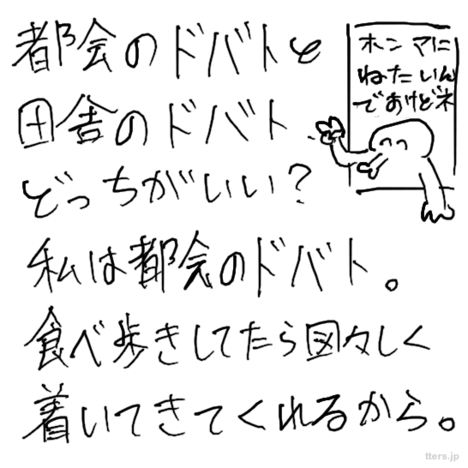 都会のドバトと
田舎のドバト
どっちがいい?
私は都会のドバト。
食べ歩きしてたら図々しく
着いてきてくれるから。
ホンマに
ねたいん
であけどネ
tters.jp